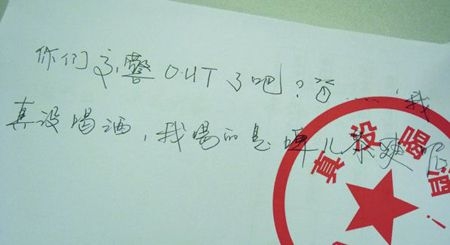 你们交警OUT了吧？答……"我
真没喝酒，我喝的是啤儿茶爽
真没喝酒！